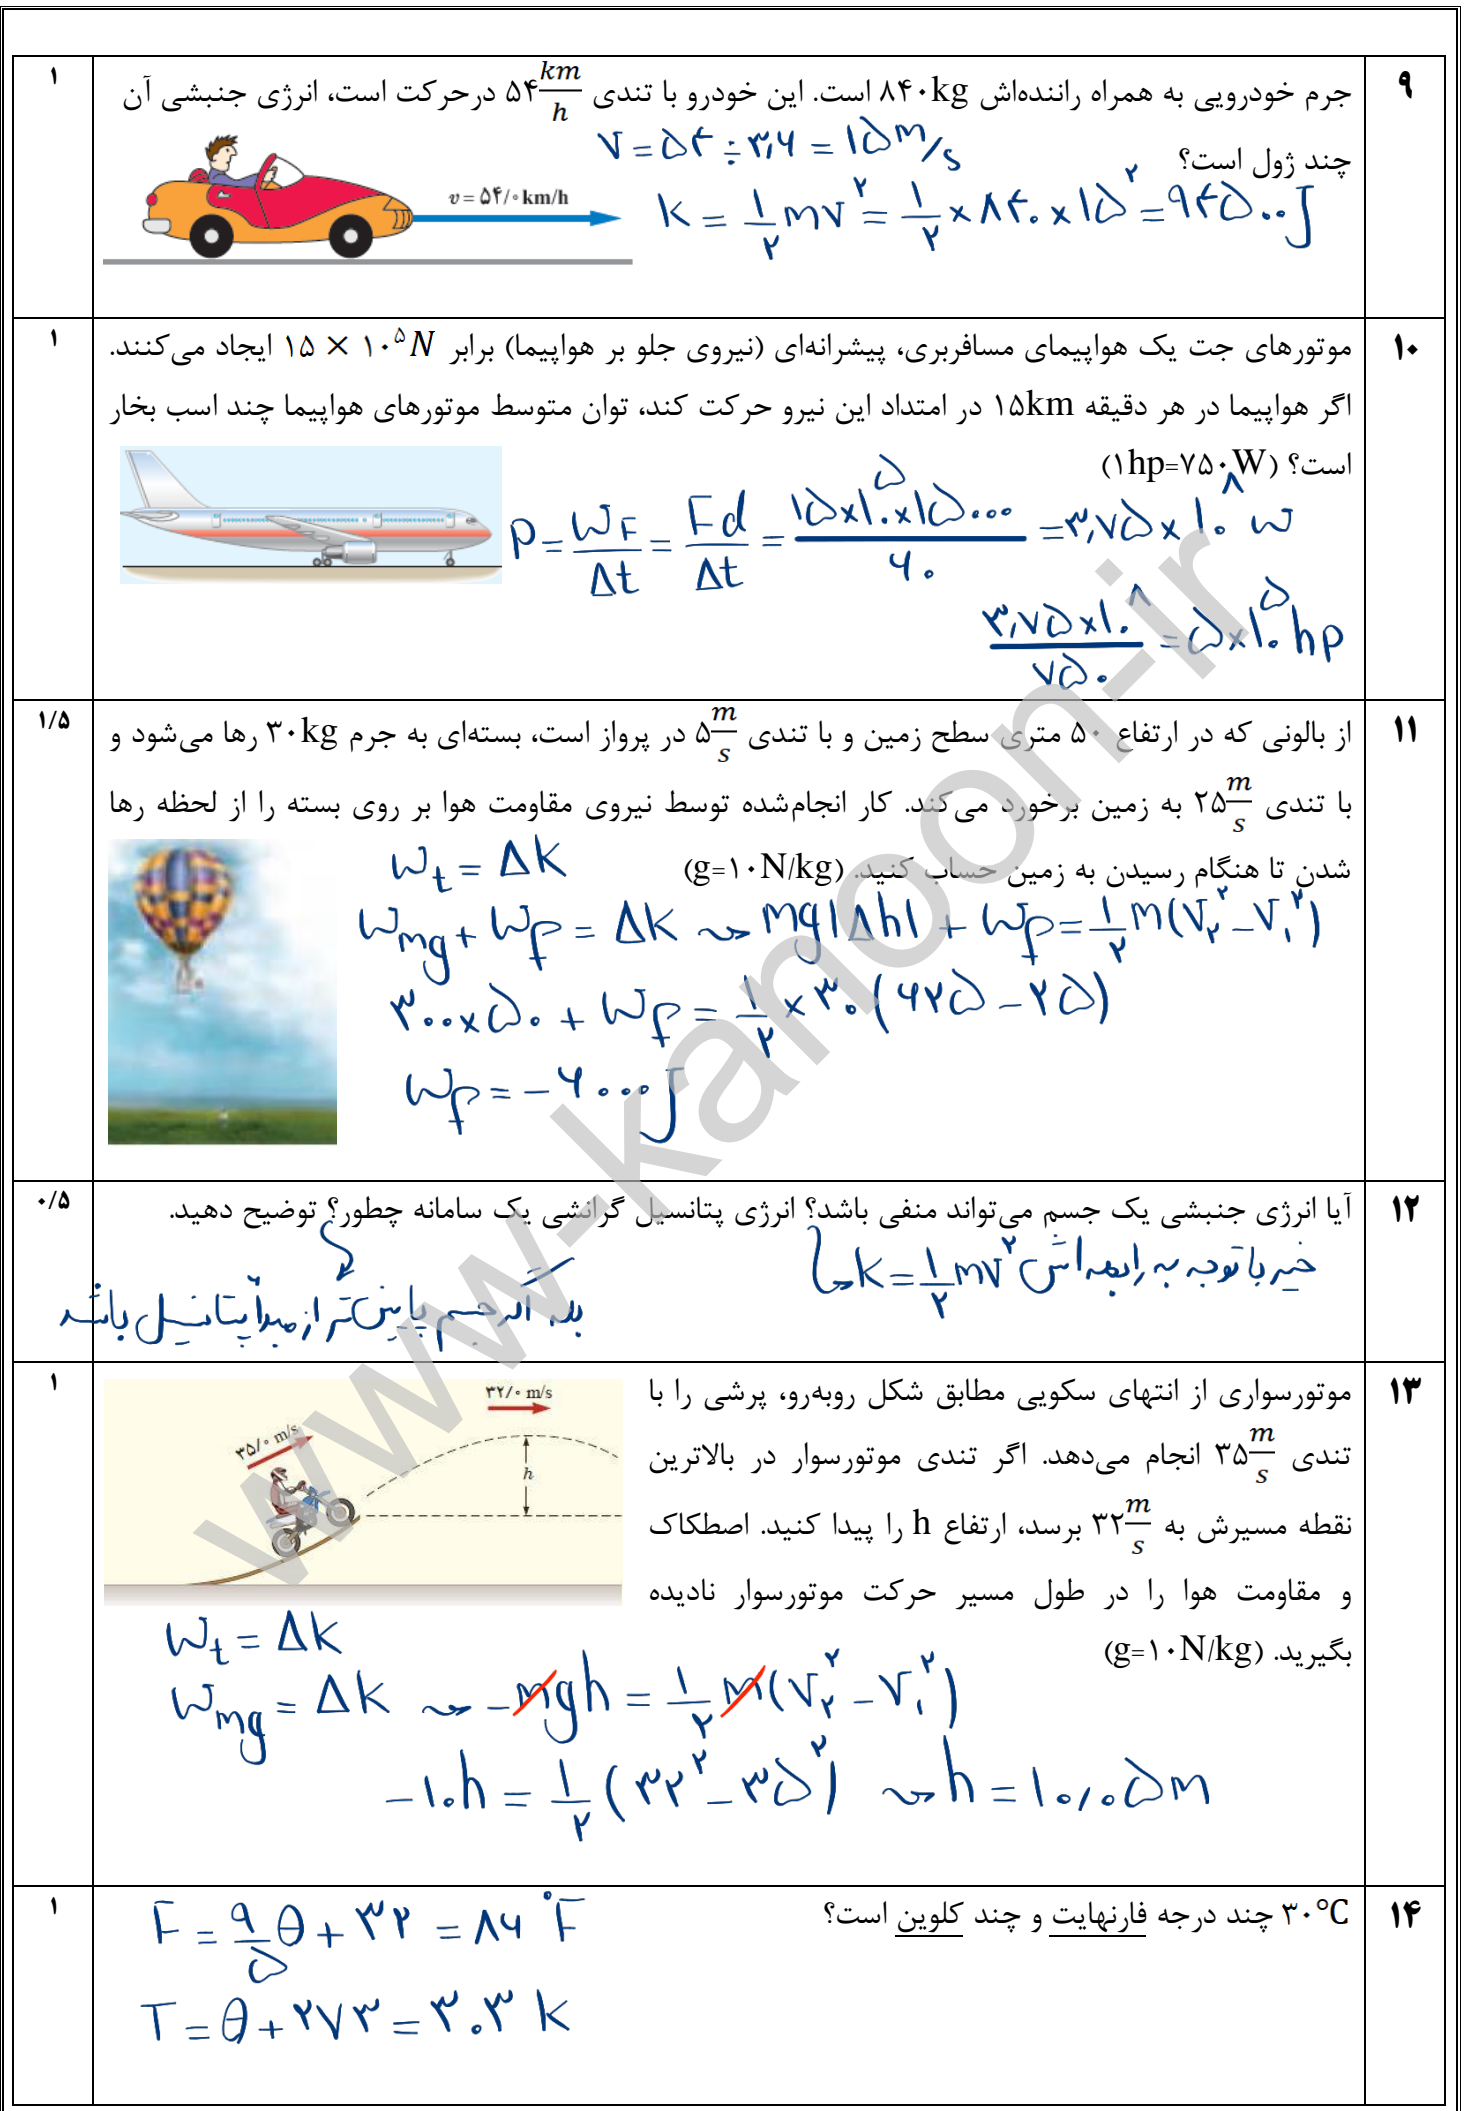 ۹
۱
جرم خودرویی به همراه راننده‌اش ۸۴۰kg است. این خودرو با تندی ۵۴ km/h درحرکت است، انرژی جنبشی آن
چند ژول است؟
v = ۵۴/۰ km/h
V = ۵۴ ÷ ۳,۶ = ۱۵ m/s
K = ۱/۲ mv² = ۱/۲ × ۸۴۰ × ۱۵² = ۹۴۵۰۰ J
۱۰
۱
موتورهای جت یک هواپیمای مسافربری، پیشرانه‌ای (نیروی جلو بر هواپیما) برابر ۱۵ × ۱۰⁵ N ایجاد می‌کنند.
اگر هواپیما در هر دقیقه ۱۵km در امتداد این نیرو حرکت کند، توان متوسط موتورهای هواپیما چند اسب بخار
است؟ (۱hp=۷۵۰W)
P = W_F/Δt = Fd/Δt = ۱۵×۱۰^۵×۱۵۰۰۰/۶۰ = ۳,۷۵×۱۰^۸ W
۳,۷۵×۱۰^۸/۷۵۰ = ۵×۱۰^۵ hp
۱۱
۱/۵
از بالونی که در ارتفاع ۵۰ متری سطح زمین و با تندی ۵ m/s در پرواز است، بسته‌ای به جرم ۳۰kg رها می‌شود و
با تندی ۲۵ m/s به زمین برخورد می‌کند. کار انجام‌شده توسط نیروی مقاومت هوا بر روی بسته را از لحظه رها
شدن تا هنگام رسیدن به زمین حساب کنید. (g=۱۰N/kg)
W_t = ΔK
W_mg + W_f = ΔK ⇝ mg|Δh| + W_f = ۱/۲ m(V_۲^۲ − V_۱^۲)
۳۰۰×۵۰ + W_f = ۱/۲ × ۳۰(۶۲۵ − ۲۵)
W_f = −۶۰۰۰ J
۱۲
۰/۵
آیا انرژی جنبشی یک جسم می‌تواند منفی باشد؟ انرژی پتانسیل گرانشی یک سامانه چطور؟ توضیح دهید.
خیر با توجه به رابطه اش K = ۱/۲ mv^۲
بله، اگر جسم پایین تر از مبدأ پتانسیل باشد
۱۳
۱
موتورسواری از انتهای سکویی مطابق شکل روبه‌رو، پرشی را با
تندی ۳۵ m/s انجام می‌دهد. اگر تندی موتورسوار در بالاترین
نقطه مسیرش به ۳۲ m/s برسد، ارتفاع h را پیدا کنید. اصطکاک
و مقاومت هوا را در طول مسیر حرکت موتورسوار نادیده
بگیرید. (g=۱۰N/kg)
۳۲/۰ m/s
۳۵/۰ m/s
h
W_t = ΔK
W_mg = ΔK ⇝ −mgh = ۱/۲ m(V_۲^۲ − V_۱^۲)
−۱۰h = ۱/۲ (۳۲^۲ − ۳۵^۲) ⇝ h = ۱۰,۰۵ m
۱۴
۱
۳۰°C چند درجه فارنهایت و چند کلوین است؟
F = ۹/۵ θ + ۳۲ = ۸۶ °F
T = θ + ۲۷۳ = ۳۰۳ K
www-kanoon-ir